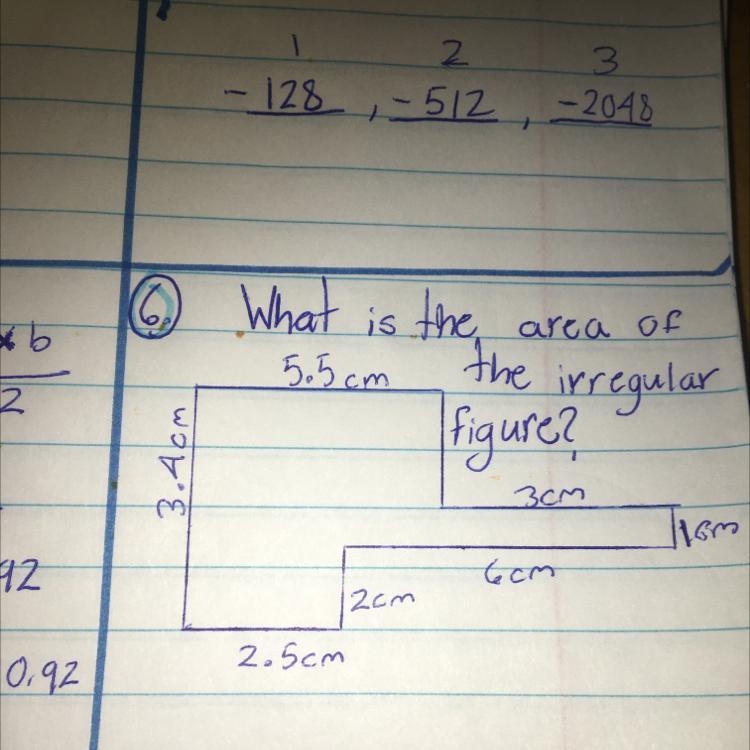 1 2 3
-128 , -512 , -2048
6. What is the area of
the irregular
figure?
5.5cm
3.4cm
3cm
1cm
6cm
2cm
2.5cm
b
2
92
0.92